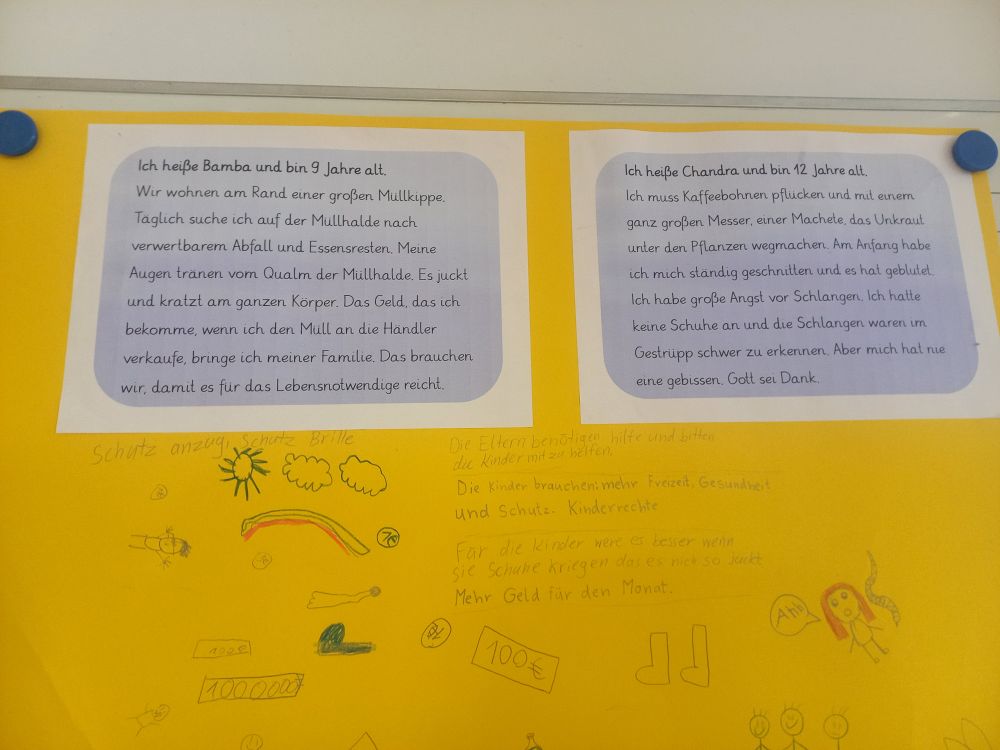 Ich heiße Bamba und bin 9 Jahre alt.
Wir wohnen am Rand einer großen Müllkippe.
Täglich suche ich auf der Müllhalde nach
verwertbarem Abfall und Essensresten. Meine
Augen tränen vom Qualm der Müllhalde. Es juckt
und kratzt am ganzen Körper. Das Geld, das ich
bekomme, wenn ich den Müll an die Händler
verkaufe, bringe ich meiner Familie. Das brauchen
wir, damit es für das Lebensnotwendige reicht.
Ich heiße Chandra und bin 12 Jahre alt.
Ich muss Kaffeebohnen pflücken und mit einem
ganz großen Messer, einer Machete, das Unkraut
unter den Pflanzen wegmachen. Am Anfang habe
ich mich ständig geschnitten und es hat geblutet.
Ich habe große Angst vor Schlangen. Ich hatte
keine Schuhe an und die Schlangen waren im
Gestrüpp schwer zu erkennen. Aber mich hat nie
eine gebissen. Gott sei Dank.
Schutz anzug, Schutz Brille
Die Eltern benötigen hilfe und bitten
die Kinder mit zu helfen.
Die Kinder brauchen: mehr Freizeit, Gesundheit
und Schutz. Kinderrechte
Für die Kinder were es besser wenn
sie Schuhe kriegen das es nich so juckt
Mehr Geld für den Monat.
Ahh
100€
100€